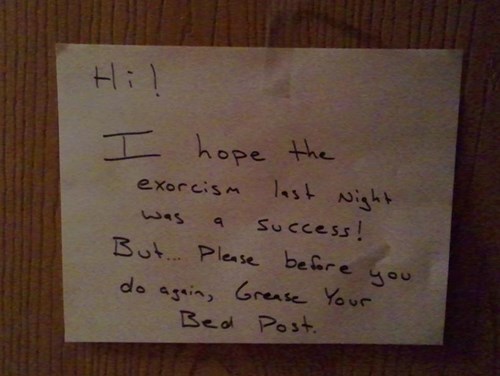 Hi!
I hope the
exorcism last Night
was a success!
But... Please before you
do again, Grease Your
Bed Post.